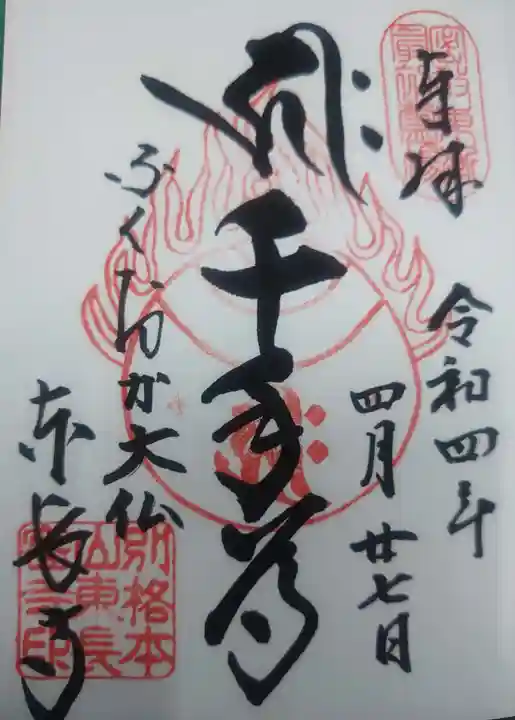 奉拝
令和四年
四月廿七日
千手尊
ふくおか大仏
東長寺
別格本
山東長